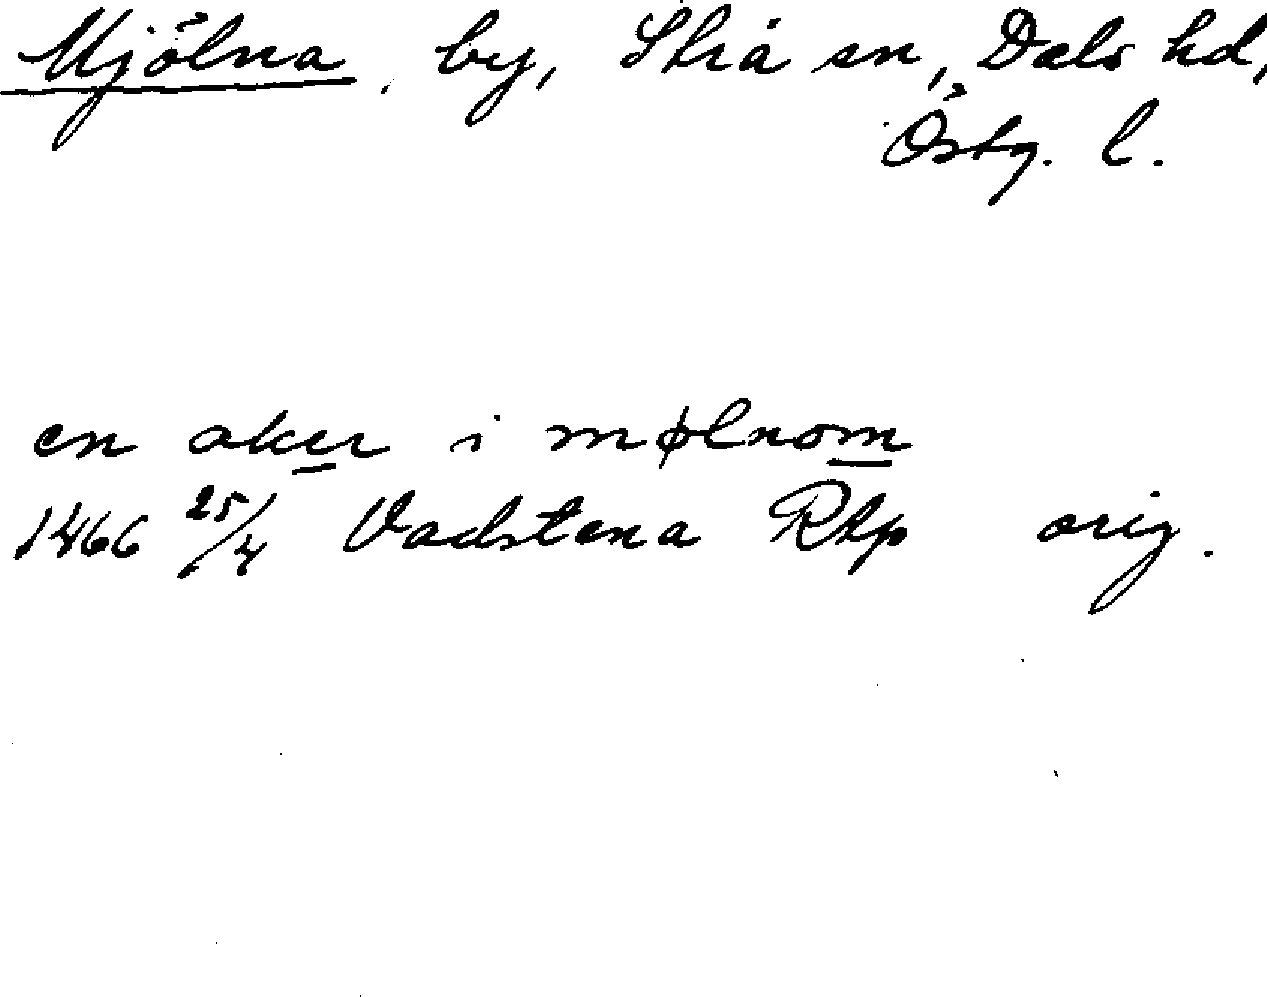 Mjölna, by, Strå sn, Dals hd,
Östg. l.
en aker i mølnom
1466 25/4 Vadstena RAp orig.